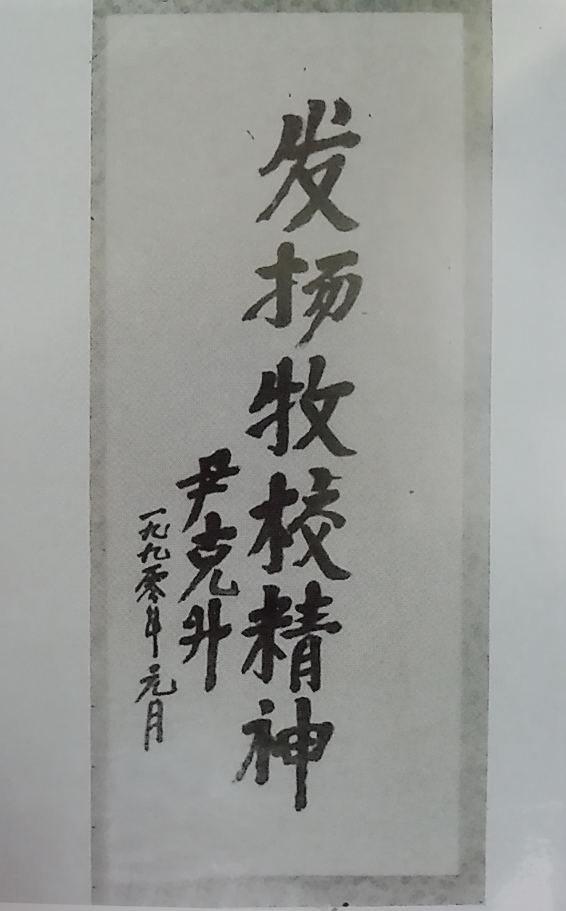 发扬牧校精神
尹克升
一九九零年元月